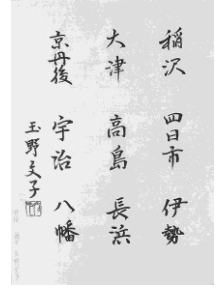 稲沢 四日市 伊勢
大津 高島 長浜
京丹後 宇治 八幡
玉野文子